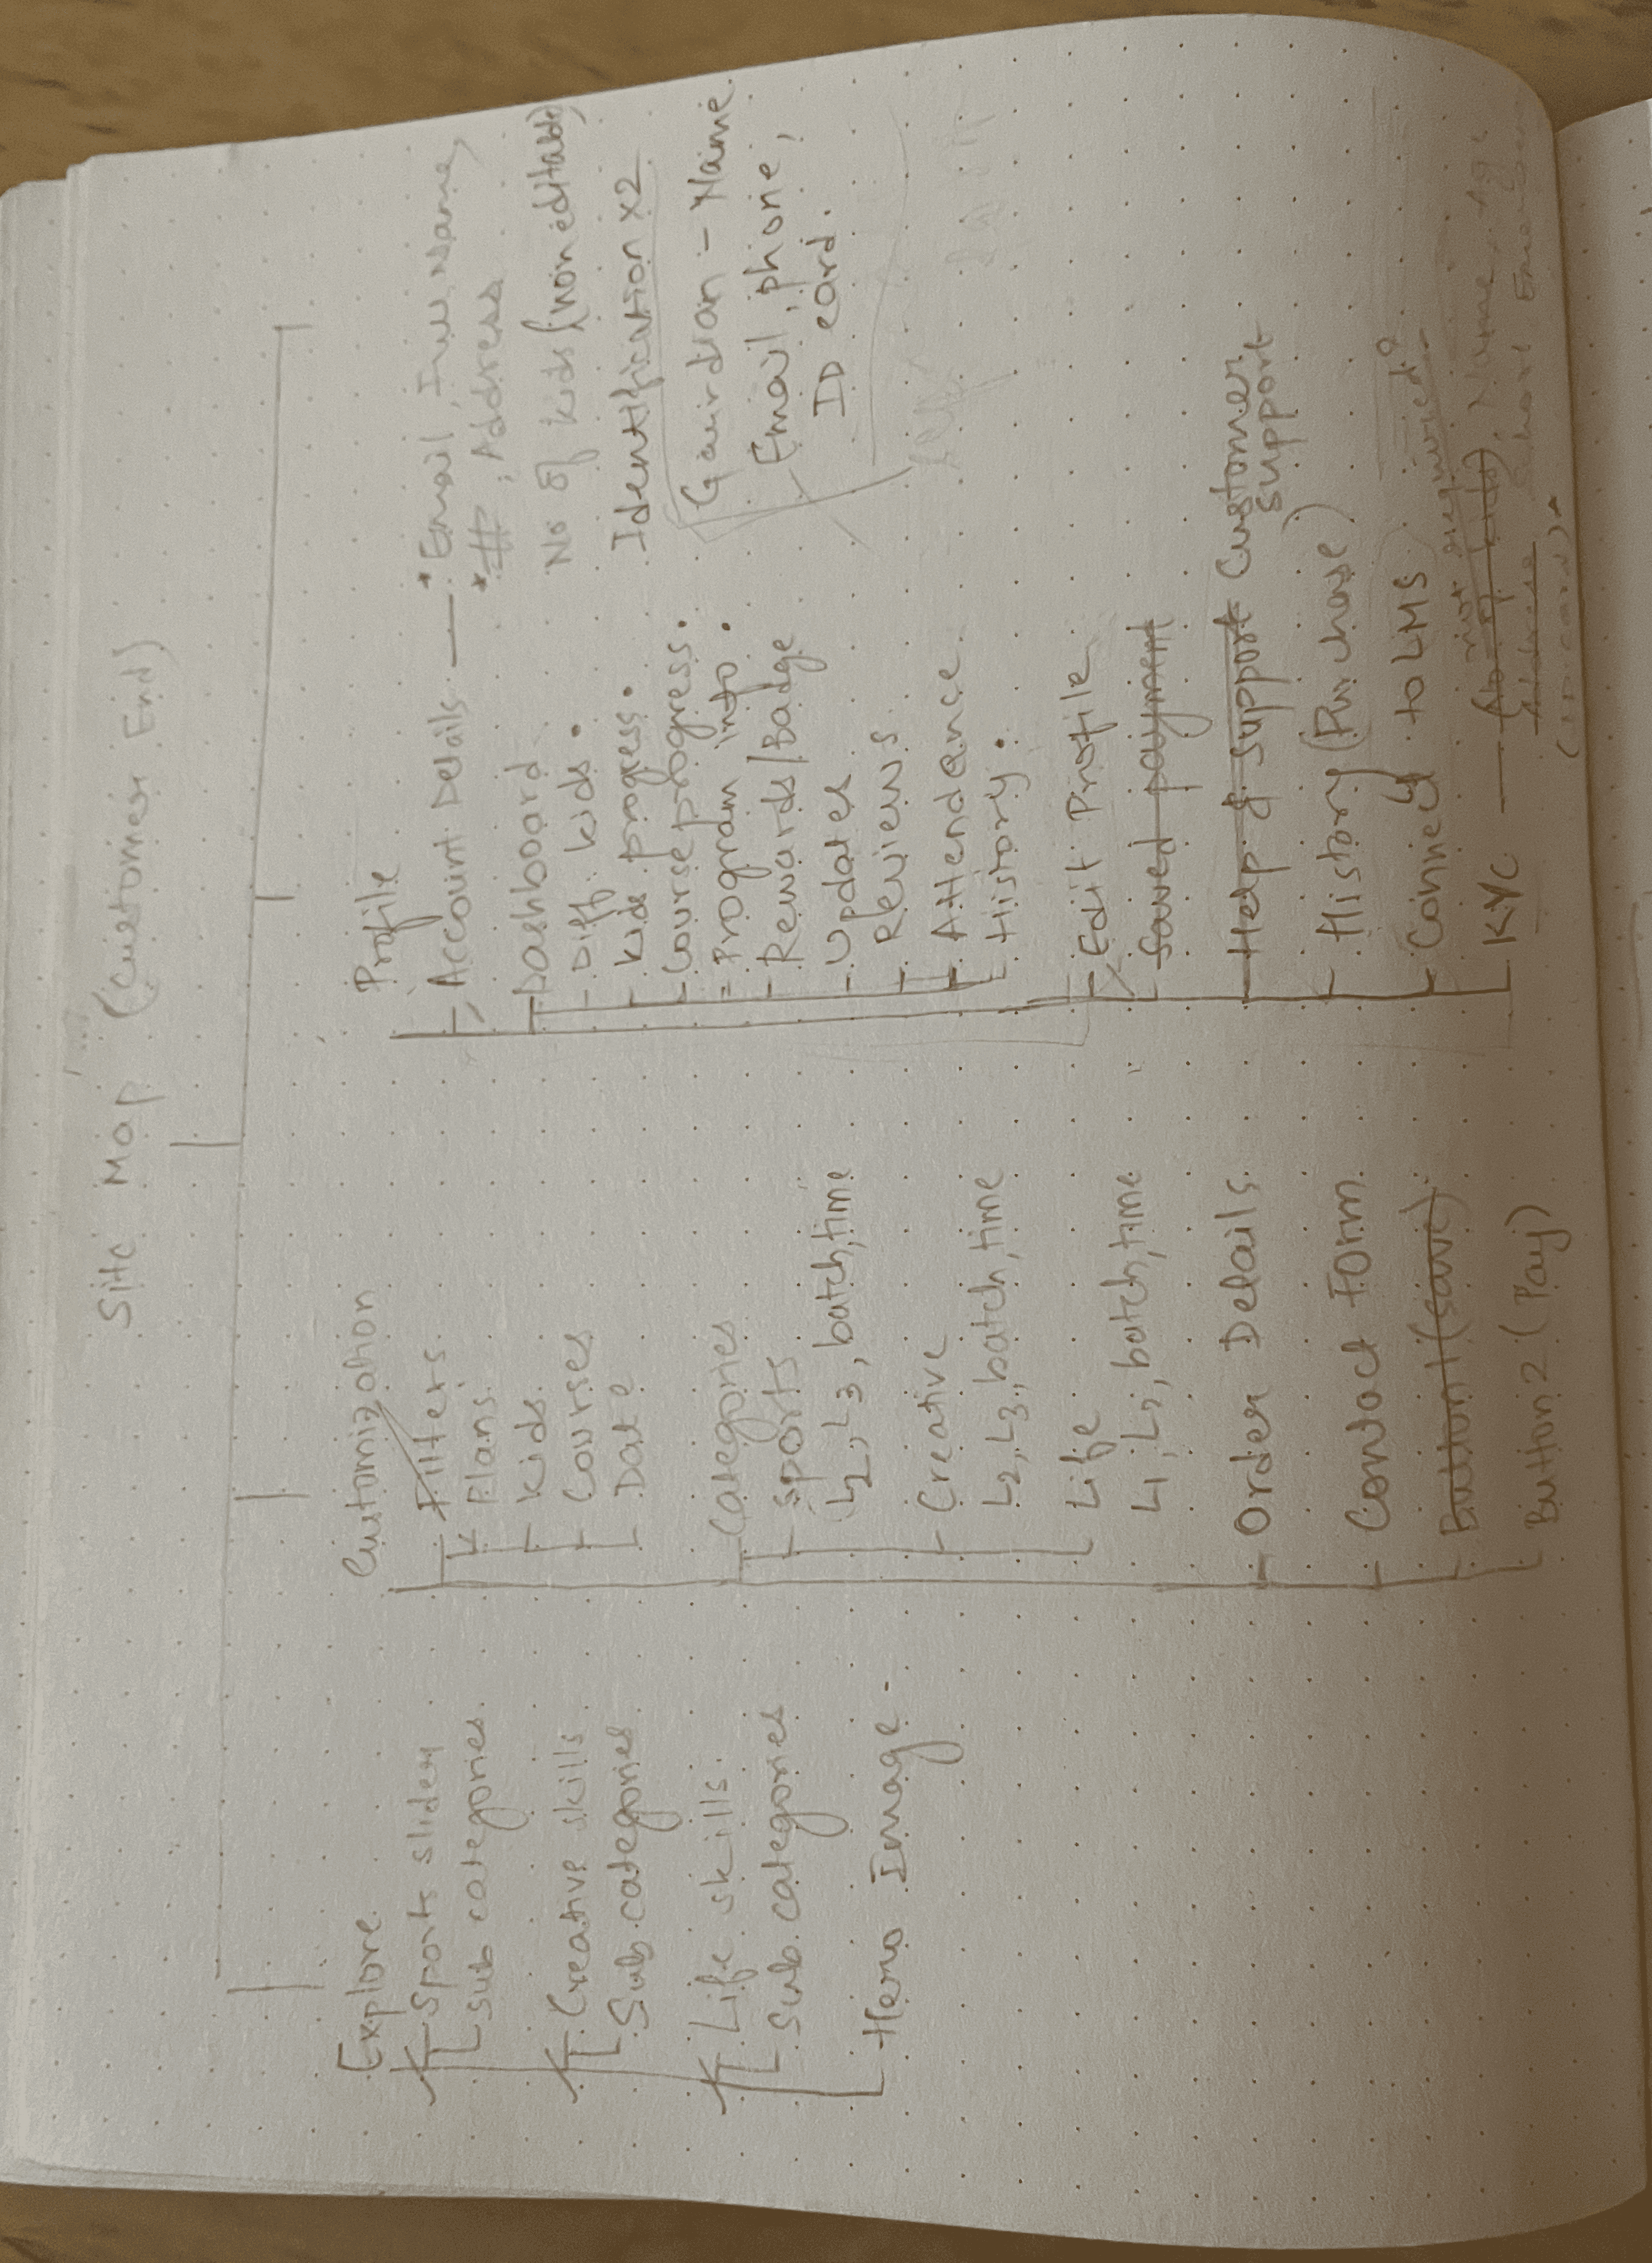 Site Map (Customer End)
Explore
Sports slider
Sub categories
Creative skills
Sub categories
Life skills
Sub categories
Hero Image
Customization
Filters
Plans
Kids
Courses
Date
Categories
Sports
L2, L3, batch, time
Creative
L2, L3, batch, time
Life
L1, L2, batch, time
Order Details
Contact Form
Button 1 (save)
Button 2 (Pay)
Profile
Account Details — Email, Full Name,
#, Address
No of kids (non editable)
Identification x2
Gaurdian - Name
Email, phone,
ID card.
Dashboard
Diff kids.
Kids progress.
Course progress.
Program info.
Rewards/Badge
Updates
Reviews
Attendance
History.
Edit Profile
Saved payment
Help & Support Customer
Support
History (Purchase)
Connect to LMS
not required?
KYC — (No of kids), Name, Age
Address
(ID card)